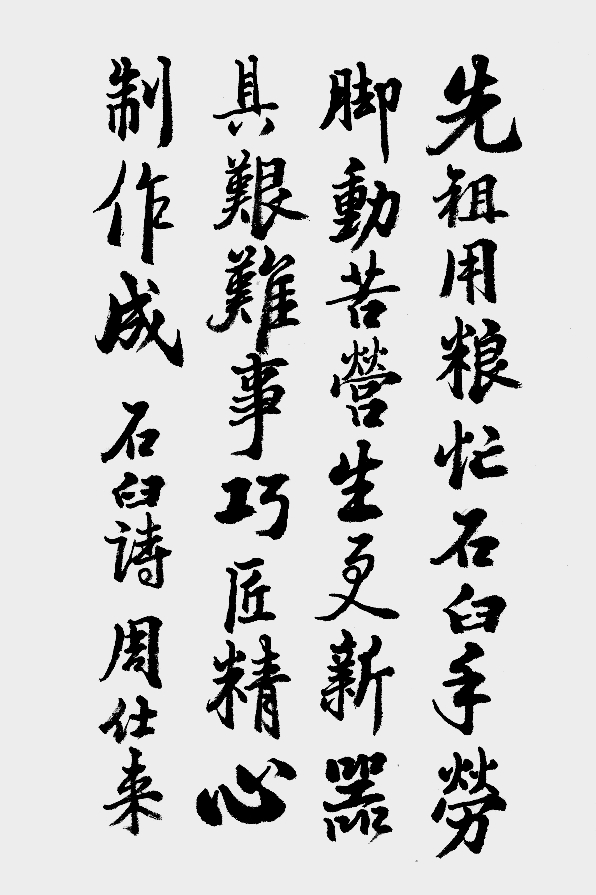 先祖用粮忙石臼手勞
脚動苦營生更新器
具艱難事巧匠精心
制作成 石臼詩 周仕来